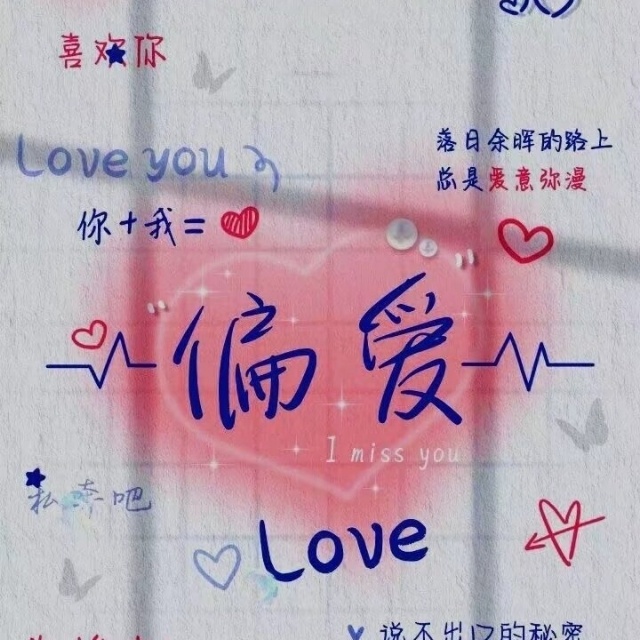 喜欢你
Love you
落日余晖的路上
总是爱意弥漫
你+我=
偏爱
I miss you
私奔吧
Love
说不出口的秘密